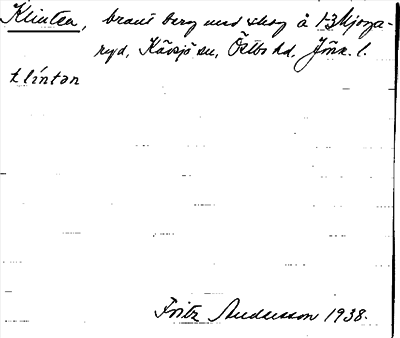 Klinten, brant berg med skog å 1-3 Mjoga-
ryd, Kävsjö sn, Östbo hd, Jönk. l.
klintən
Fritz Andersson 1938.